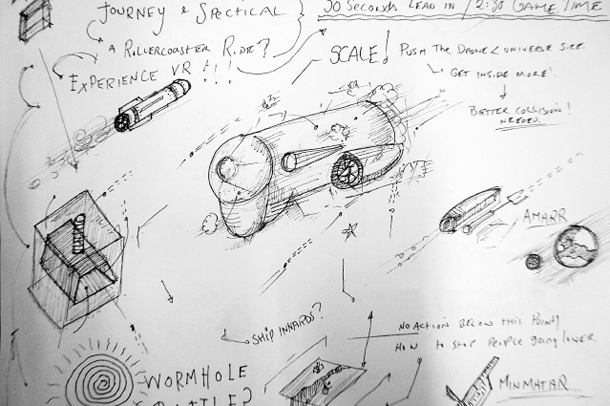 JOURNEY & SPECTICAL
30 SECONDS LEAD IN / 2:30 GAME TIME
A ROLLERCOASTER RIDE?
EXPERIENCE VR!!!
SCALE! PUSH THE DRONE < UNIVERSE SIZE.
GET INSIDE MORE!
BETTER COLLISION!
NEEDED.
AMARR
SHIP INNARDS?
NO ACTION BELOW THIS POINT,
HOW TO STOP PEOPLE GOING LOWER
WORMHOLE
MINMATAR